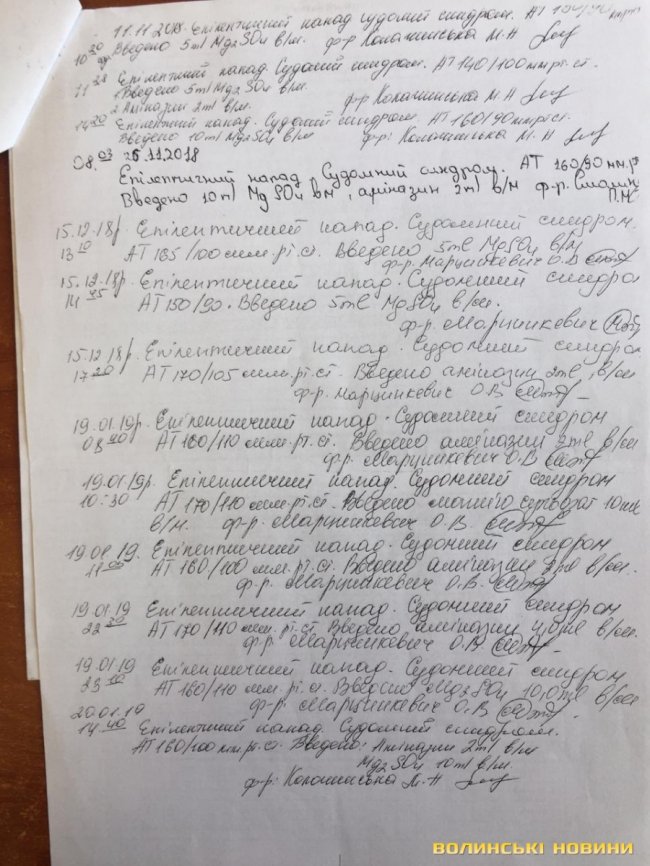 11.11.2018. Епілептичний напад. Судомний синдром. АТ 150/90
10 20 Введено 5ml Mg2SO4 в/м. ф-р Колошинська М.Н
11 20 Епілептичний напад. Судомний синдром. АТ 140/100 мм рт ст.
1 Введено 5ml Mg2SO4 в/м.
2 Аміназин 2ml в/м. ф-р Колошинська М.Н
14 20 Епілептичний напад. Судомний синдром. АТ 160/90 мм рт ст
Введено 10ml Mg2SO4 в/м. ф-р: Колошинська М.Н
08.03 25.11.2018
Епілептичний напад. Судомний синдром. АТ 160/90 мм.р
Введено 10ml MgSO4 вм, аміназин 2ml в/м ф-р.
15.12.18р. Епілептичний напад. Судомний синдром.
13 10 АТ 165/100 мм.рт.ст. Введено 5ml MgSO4 в/м
ф-р. Марцинкевич О.В
15.12.18р. Епілептичний напад. Судомний синдром
14 45 АТ 150/90. Введено 5ml MgSO4 в/м.
ф-р. Марцинкевич
15.12.18р. Епілептичний напад. Судомний синдром
17 20 АТ 170/105 мм.рт.ст. Введено аміназин 2ml в/м
ф-р. Марцинкевич О.В
19.01.19р. Епілептичний напад. Судомний синдром
08 40 АТ 160/110 мм.рт.ст. Введено аміназин 2ml в/м
ф-р. Марцинкевич О.В
19.01.19р. Епілептичний напад. Судомний синдром
10:30 АТ 170/110 мм.рт.ст. Введено 10
в/м. ф-р. Марцинкевич О.В
19.01.19. Епілептичний напад. Судомний синдром
11 АТ 160/100 мм.рт.ст. Введено аміназин 2ml в/м.
ф-р. Марцинкевич О.В.
19.01.19 Епілептичний напад. Судомний синдром
22 20 АТ 170/110 мм.рт.ст Введено аміназин 4,0ml в/м
ф-р Марцинкевич О.В
19.01.19 Епілептичний напад. Судомний синдром
23 10 АТ 160/110 мм.рт.ст. Введено Mg2SO4 10,0ml в/м
ф-р. Марцинкевич О.В
20.01.19
14.40 Епілептичний напад. Судомний синдром.
АТ 160/100 мм.рт.ст. Введено: Аміназин 2ml в/м
Mg2SO4 10ml в/м.
ф-р: Колошинська М.Н
ВОЛИНСЬКІ НОВИНИ